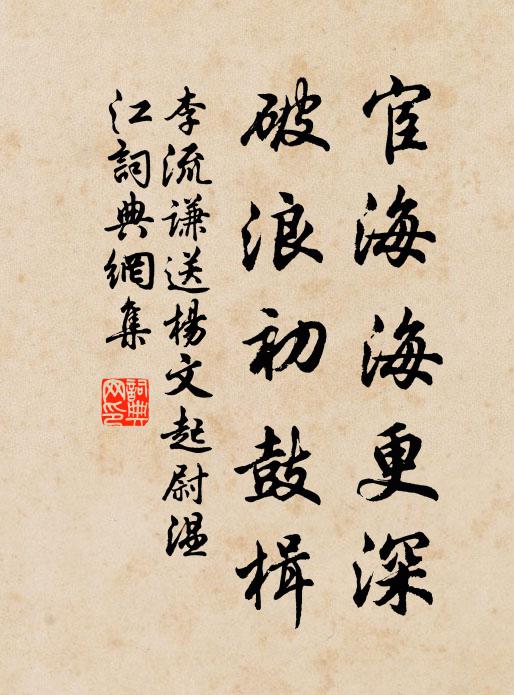 宦海海更深
破浪初鼓楫
李流謙送楊文起尉溫
江詞典網集
詞典
网印